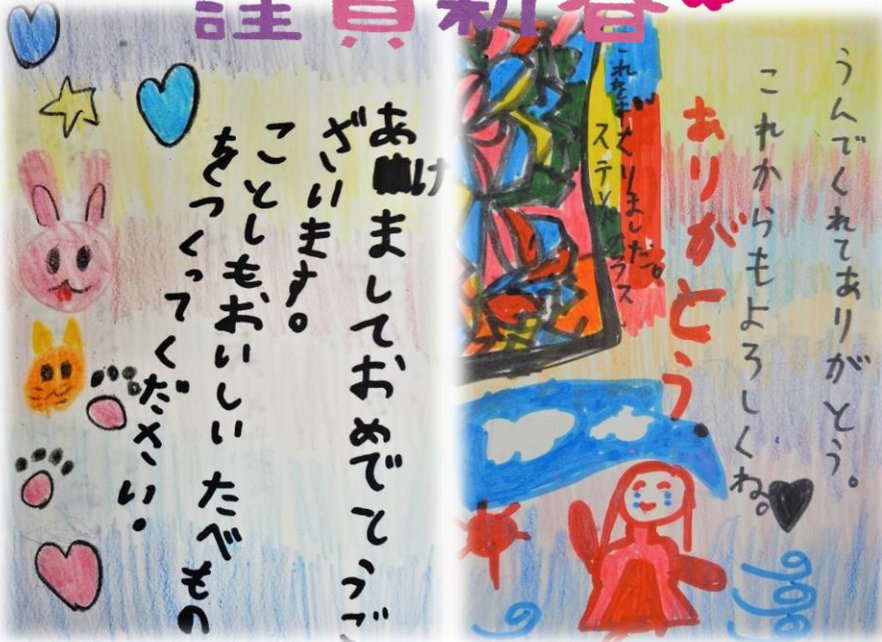 謹賀新春
うんでくれてありがとう。
これからもよろしくね。
ありがとう.
ステンドグラス
あけましておめでとうご
ざいます。
ことしもおいしいたべもの
をつくってください.